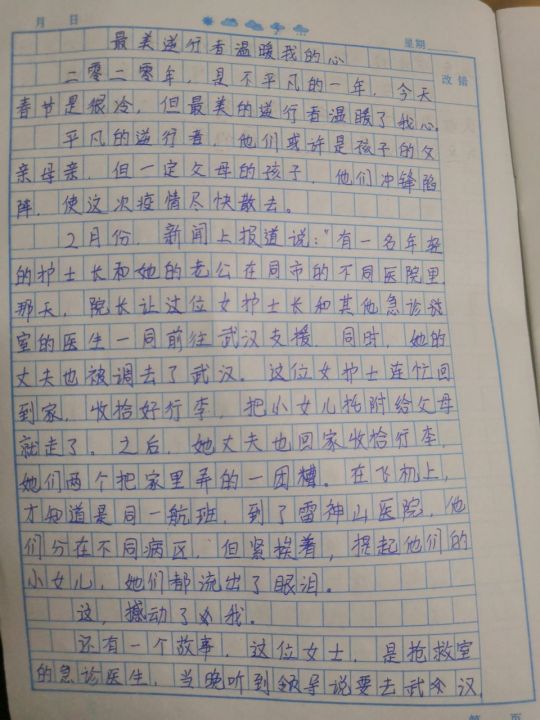 月 日
星期
改错
最美逆行者温暖我的心
二零二零年，是不平凡的一年，今天
春节是很冷，但最美的逆行者温暖了我心。
平凡的逆行者，他们或许是孩子的父
亲母亲，但一定父母的孩子，他们冲锋陷
阵，使这次疫情尽快散去。
2月份，新闻上报道说："有一名年轻
的护士长和她的老公在同市的不同医院里，
那天，院长让这位女护士长和其他急诊
室的医生一同前往武汉支援，同时，她的
丈夫也被调去了武汉。这位女护士连忙回
到家，收拾好行李，把小女儿托附给父母
就走了。之后，她丈夫也回家收拾行李，
她们两个把家里弄的一团糟。在飞机上，
才知道是同一航班，到了雷神山医院，他
们分在不同病区，但紧挨着，提起他们的
小女儿，她们都流出了眼泪。
这，撼动了我。
还有一个故事，这位女士，是抢救室
的急诊医生，当晚听到领导说要去武汉，
第 页